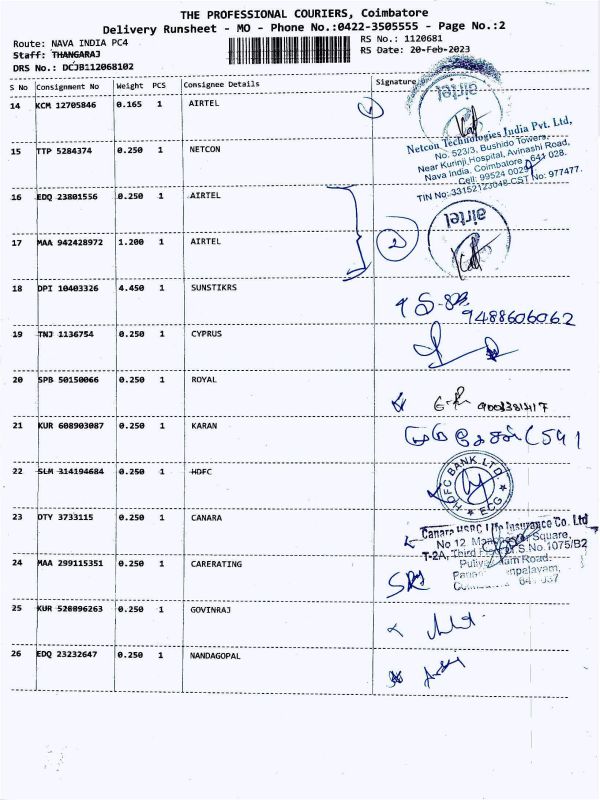 THE PROFESSIONAL COURIERS, Coimbatore
Delivery Runsheet - MO - Phone No.:0422-3505555 - Page No.:2
Route: NAVA INDIA PC4
RS No.: 1120681
Staff: THANGARAJ
RS Date: 20-Feb-2023
DRS No.: DCJB112068102
S No Consignment No Weight PCS Consignee Details Signature
14 KCM 12705846 0.165 1 AIRTEL
airtel
Netcon Technologies India Pvt. Ltd,
No. 523/3, Bushido Towers,
Near Kurinji Hospital, Avinashi Road,
Nava India. Coimbatore 641 028.
Cell: 99524 0029
TIN No: 33152123048 CST No: 977477.
15 TTP 5284374 0.250 1 NETCON
16 EDQ 23801556 0.250 1 AIRTEL
17 MAA 942428972 1.200 1 AIRTEL 2 airtel
18 DPI 10403326 4.450 1 SUNSTIKRS
9488606062
19 TNJ 1136754 0.250 1 CYPRUS
20 SPB 50150066 0.250 1 ROYAL
21 KUR 608903087 0.250 1 KARAN
22 SLM 314194684 0.250 1 HDFC
HDFC BANK LTD. ECG
23 DTY 3733115 0.250 1 CANARA
Canara HSBC Life Insurance Co. Ltd
No 12, Square,
T-2A, Third S.No.1075/B2
Road,
641 037
24 MAA 299115351 0.250 1 CARERATING
25 KUR 520896263 0.250 1 GOVINRAJ
26 EDQ 23232647 0.250 1 NANDAGOPAL